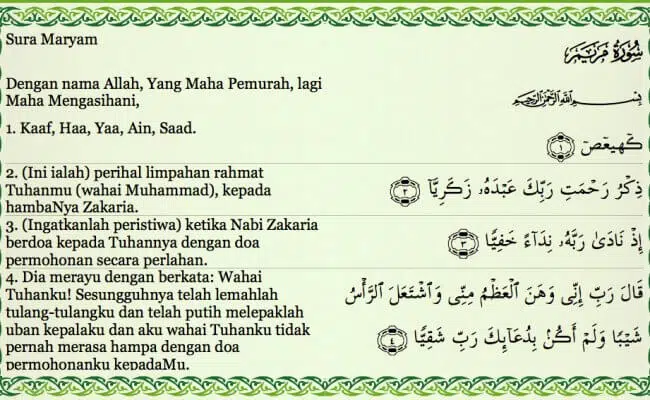 Sura Maryam
سُورَةُ مَرْيَم
Dengan nama Allah, Yang Maha Pemurah, lagi
Maha Mengasihani,
بِسْمِ اللَّهِ الرَّحْمَٰنِ الرَّحِيمِ
1. Kaaf, Haa, Yaa, Ain, Saad.
كٓهيعٓصٓ ١
2. (Ini ialah) perihal limpahan rahmat
Tuhanmu (wahai Muhammad), kepada
hambaNya Zakaria.
ذِكْرُ رَحْمَتِ رَبِّكَ عَبْدَهُۥ زَكَرِيَّآ ٢
3. (Ingatkanlah peristiwa) ketika Nabi Zakaria
berdoa kepada Tuhannya dengan doa
permohonan secara perlahan.
إِذْ نَادَىٰ رَبَّهُۥ نِدَآءً خَفِيًّا ٣
4. Dia merayu dengan berkata: Wahai
Tuhanku! Sesungguhnya telah lemahlah
tulang-tulangku dan telah putih melepaklah
uban kepalaku dan aku wahai Tuhanku tidak
pernah merasa hampa dengan doa
permohonanku kepadaMu.
قَالَ رَبِّ إِنِّى وَهَنَ ٱلْعَظْمُ مِنِّى وَٱشْتَعَلَ ٱلرَّأْسُ
شَيْبًا وَلَمْ أَكُنۢ بِدُعَآئِكَ رَبِّ شَقِيًّا ٤